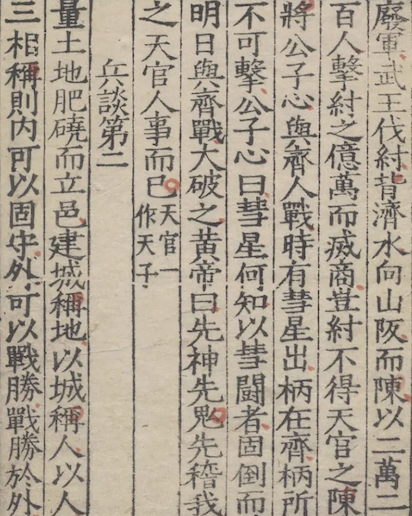 廢軍武王伐紂背濟水向山阪而陳以二萬二
百人擊紂之億萬而滅商豈紂不得天官之陳
將公子心與齊人戰時有彗星出柄在齊柄所
不可擊公子心曰彗星何知以彗鬪者固倒而
明日與齊戰大破之黃帝曰先神先鬼先稽我
之天官人事而已天官一
作天子
兵談第二
量土地肥磽而立邑建城稱地以城稱人以人
三相稱則内可以固守外可以戰勝戰勝於外